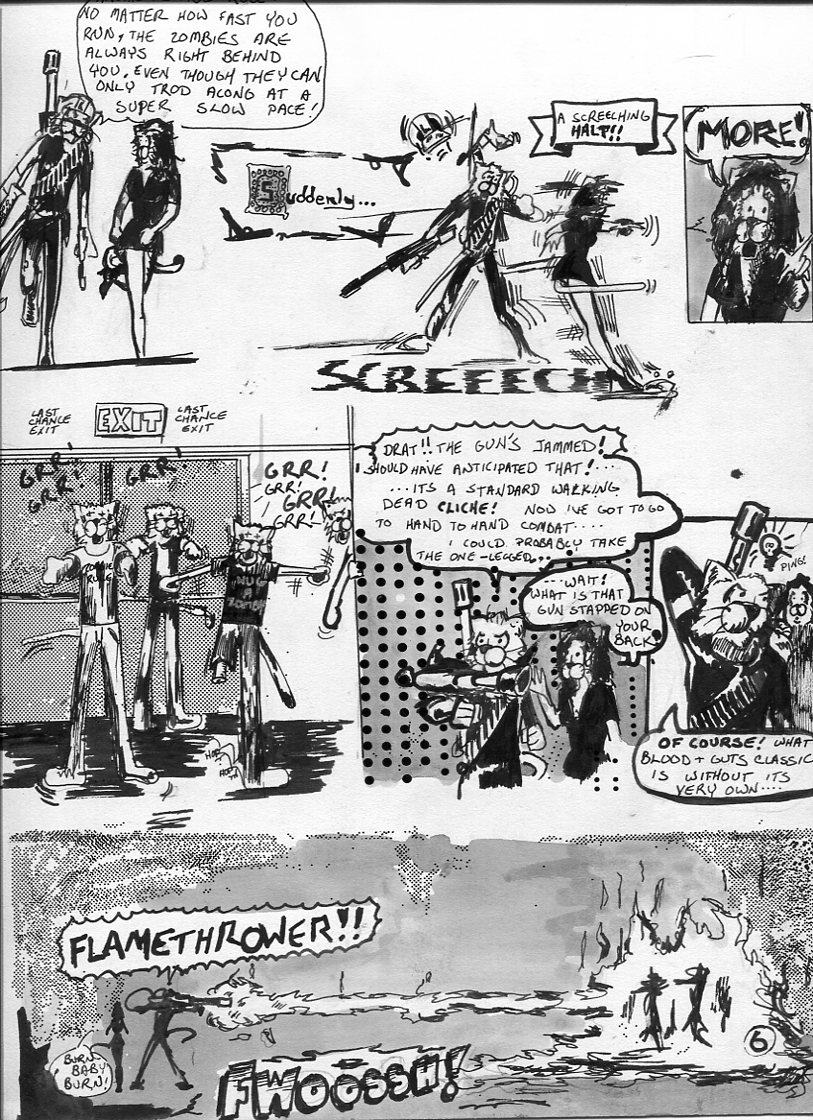 NO MATTER HOW FAST YOU
RUN, THE ZOMBIES ARE
ALWAYS RIGHT BEHIND
YOU. EVEN THOUGH THEY CAN
ONLY TROD ALONG AT A
SUPER SLOW PACE!
Suddenly...
A SCREECHING
HALT!!
SCREEECH
MORE!
LAST
CHANCE
EXIT
EXIT
LAST
CHANCE
EXIT
GRR!
GRR!
GRR!
GRR!
GRR!
GRR!
GRR!
ZOMBIE
RULE
HUG
A
ZOMBIE
HOP
HOP
DRAT!! THE GUN'S JAMMED!
I SHOULD HAVE ANTICIPATED THAT!...
...ITS A STANDARD WALKING
DEAD CLICHE! NOW I'VE GOT TO GO
TO HAND TO HAND COMBAT....
I COULD PROBABLY TAKE
THE ONE-LEGGED...
....WAIT!
WHAT IS THAT
GUN STAPPED ON
YOUR
BACK
PING!
OF COURSE! WHAT
BLOOD + GUTS CLASSIC
IS WITHOUT ITS
VERY OWN....
FLAMETHROWER!!
BURN
BABY
BURN!
FWOOSSH!
6